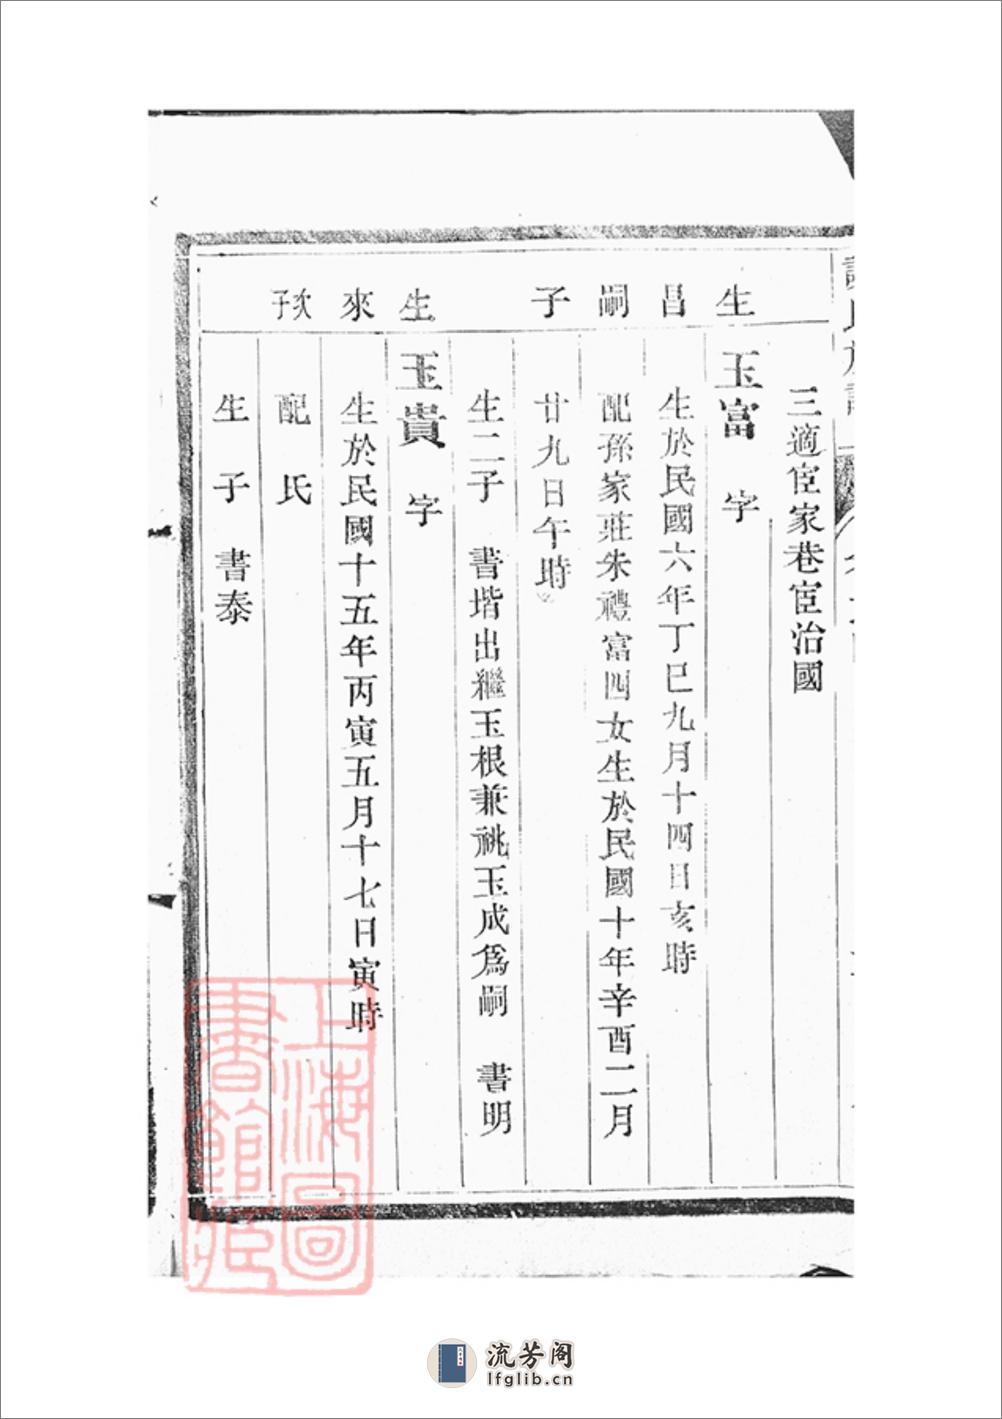 三適宦家巷宦治國
生
玉富 字
昌
生於民國六年丁巳九月十四日亥時
嗣
配孫家莊朱禮富四女生於民國十年辛酉二月
子
廿九日午時
生二子 書堦出繼玉根兼祧玉成爲嗣 書明
生
玉貴 字
來
生於民國十五年丙寅五月十七日寅時
次子
配 氏
生子 書泰
上海圖書館藏
流芳阁
lfglib.cn